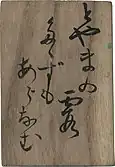 とやまの
霞
たゝずも
あらなむ